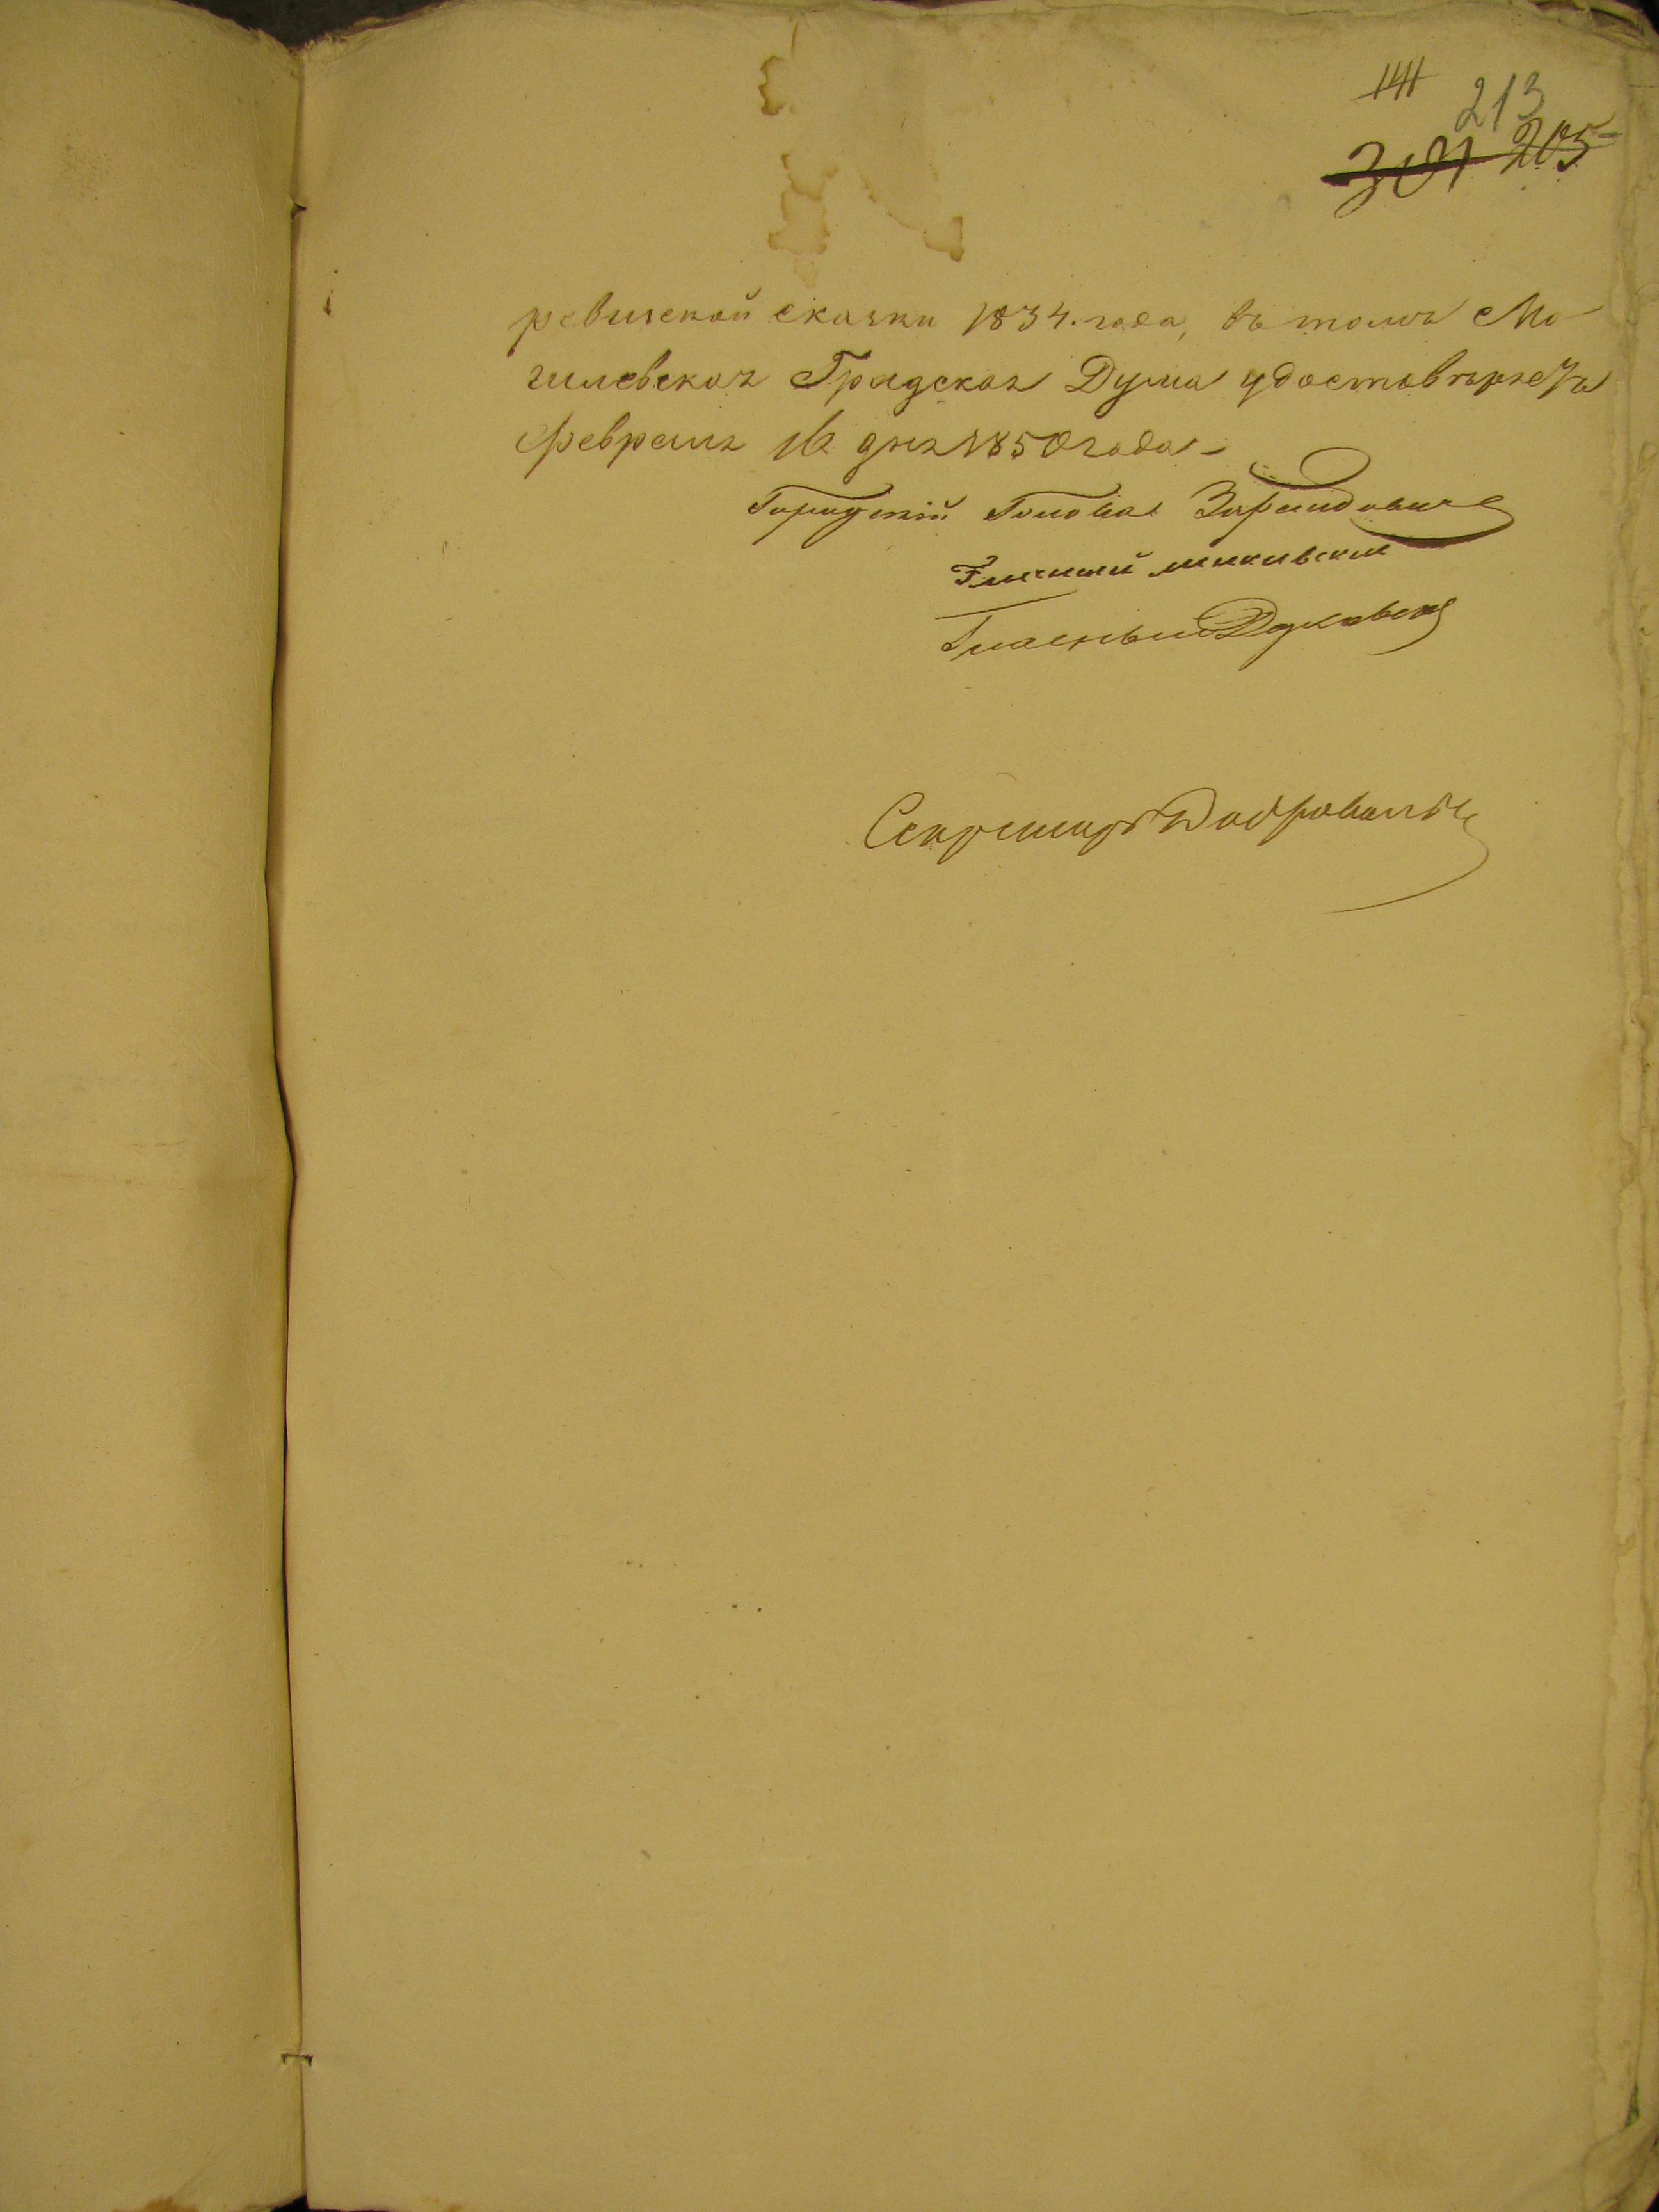 141
213
301 205
ревизской сказки 1834. года, въ томъ Мо-
гилевская Градская Дума удостовѣряетъ
Февраля 16 дня 1850 года -
Городской Голова
Гласный
Гласный
Секретарь